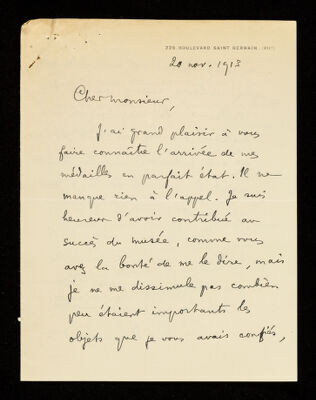 226 BOULEVARD SAINT GERMAIN (VIIe)
20 nov. 1913
Cher monsieur,
J'ai grand plaisir à vous
faire connaître l'arrivée de mes
médailles en parfait état. Il ne
manque rien à l'appel. Je suis
heureux d'avoir contribué au
succès du musée, comme vous
avez la bonté de me le dire, mais
je ne me dissimule pas combien
peu étaient importants les
objets que je vous avais confiés,